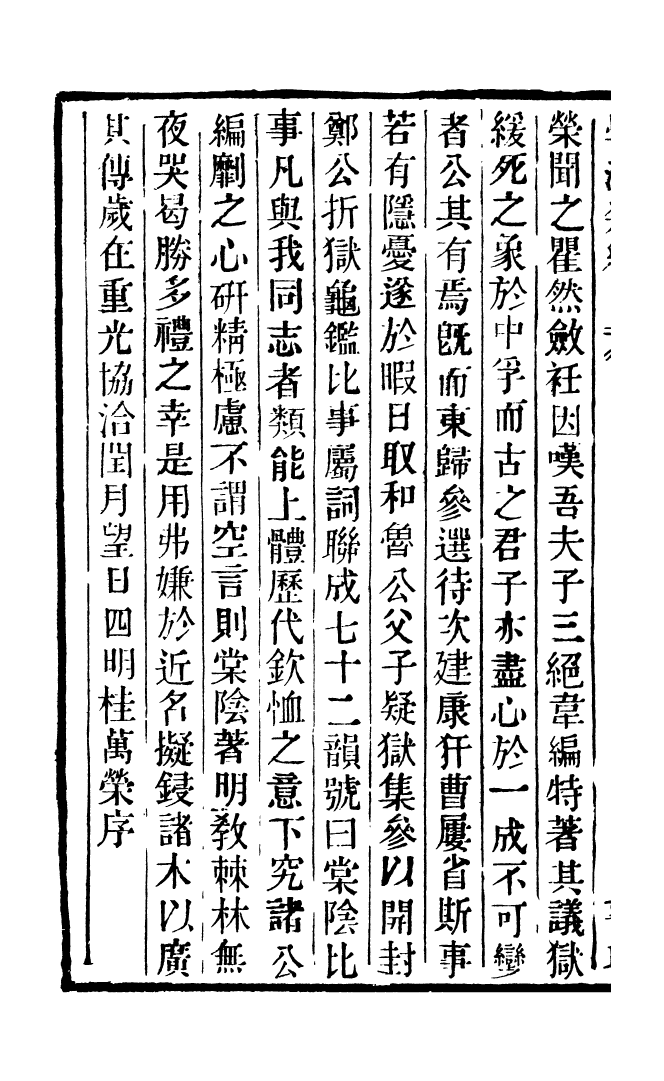 榮聞之瞿然斂衽因嘆吾夫子三絕韋編特著其議獄
緩死之象於中孚而古之君子亦盡心於一成不可變
者公其有焉旣而東歸參選待次建康犴曹屢省斯事
若有隱憂遂於暇日取和魯公父子疑獄集參以開封
鄭公折獄龜鑑比事屬詞聯成七十二韻號曰棠陰比
事凡與我同志者類能上體歷代欽恤之意下究諸公
編劘之心研精極慮不謂空言則棠陰著明教棘林無
夜哭曷勝多禮之幸是用弗嫌於近名擬鋟諸木以廣
其傳歲在重光協洽閏月望日四明桂萬榮序